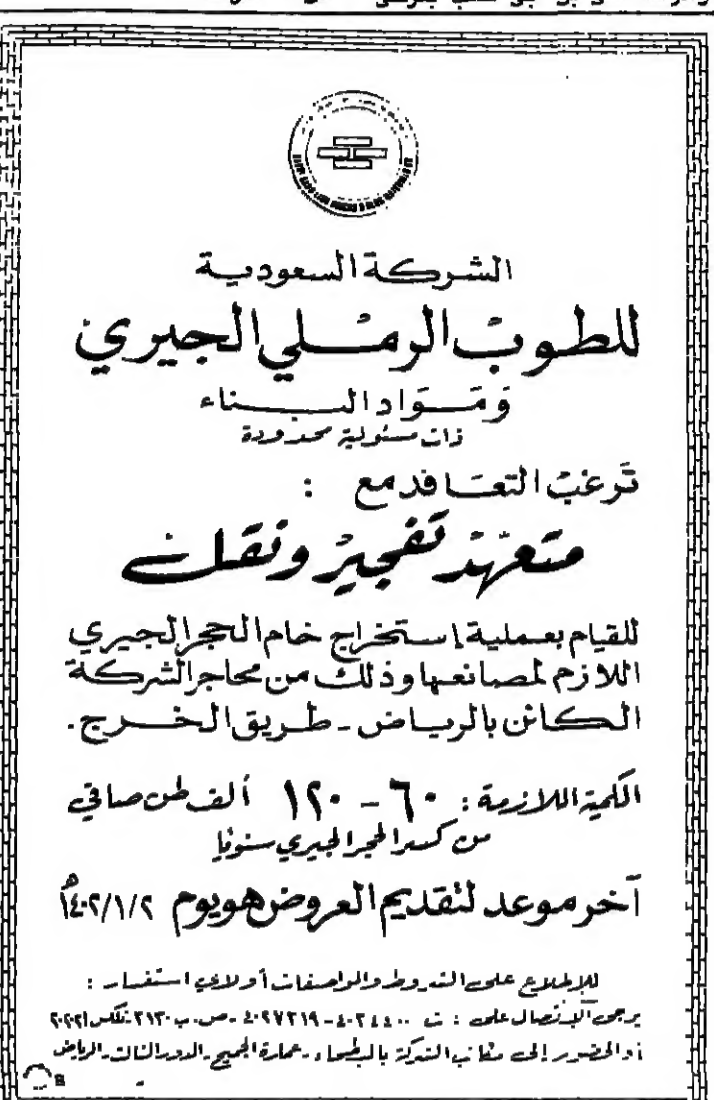 الشركة السعودية
للطوب الرملي الجيري
ومواد البناء
ذات مسئولية محدودة
ترغب التعاقد مع :
متعهد تفجير ونقل
للقيام بعملية إستخراج خام الحجر الجيري
اللازم لمصانعها وذلك من محاجر الشركة
الكائن بالرياض - طريق الخرج .
الكمية اللازمة : ٦٠ - ١٢٠ ألف طن صافي
من كسر الحجر الجيري سنويا
آخر موعد لتقديم العروض هو يوم ١٤٠٢/١/٢هـ
للإطلاع على الشروط والمواصفات أو لاي استفسار :
يرجى الإتصال على : ت ٤٠٢٤٤٠٠ - ٤٠٢٧٢١٩ - ص.ب ٢١٣٠ - تلكس
أو الحضور إلى مكاتب الشركة بالبطحاء - عمارة الجميح - الدور الثالث - الرياض